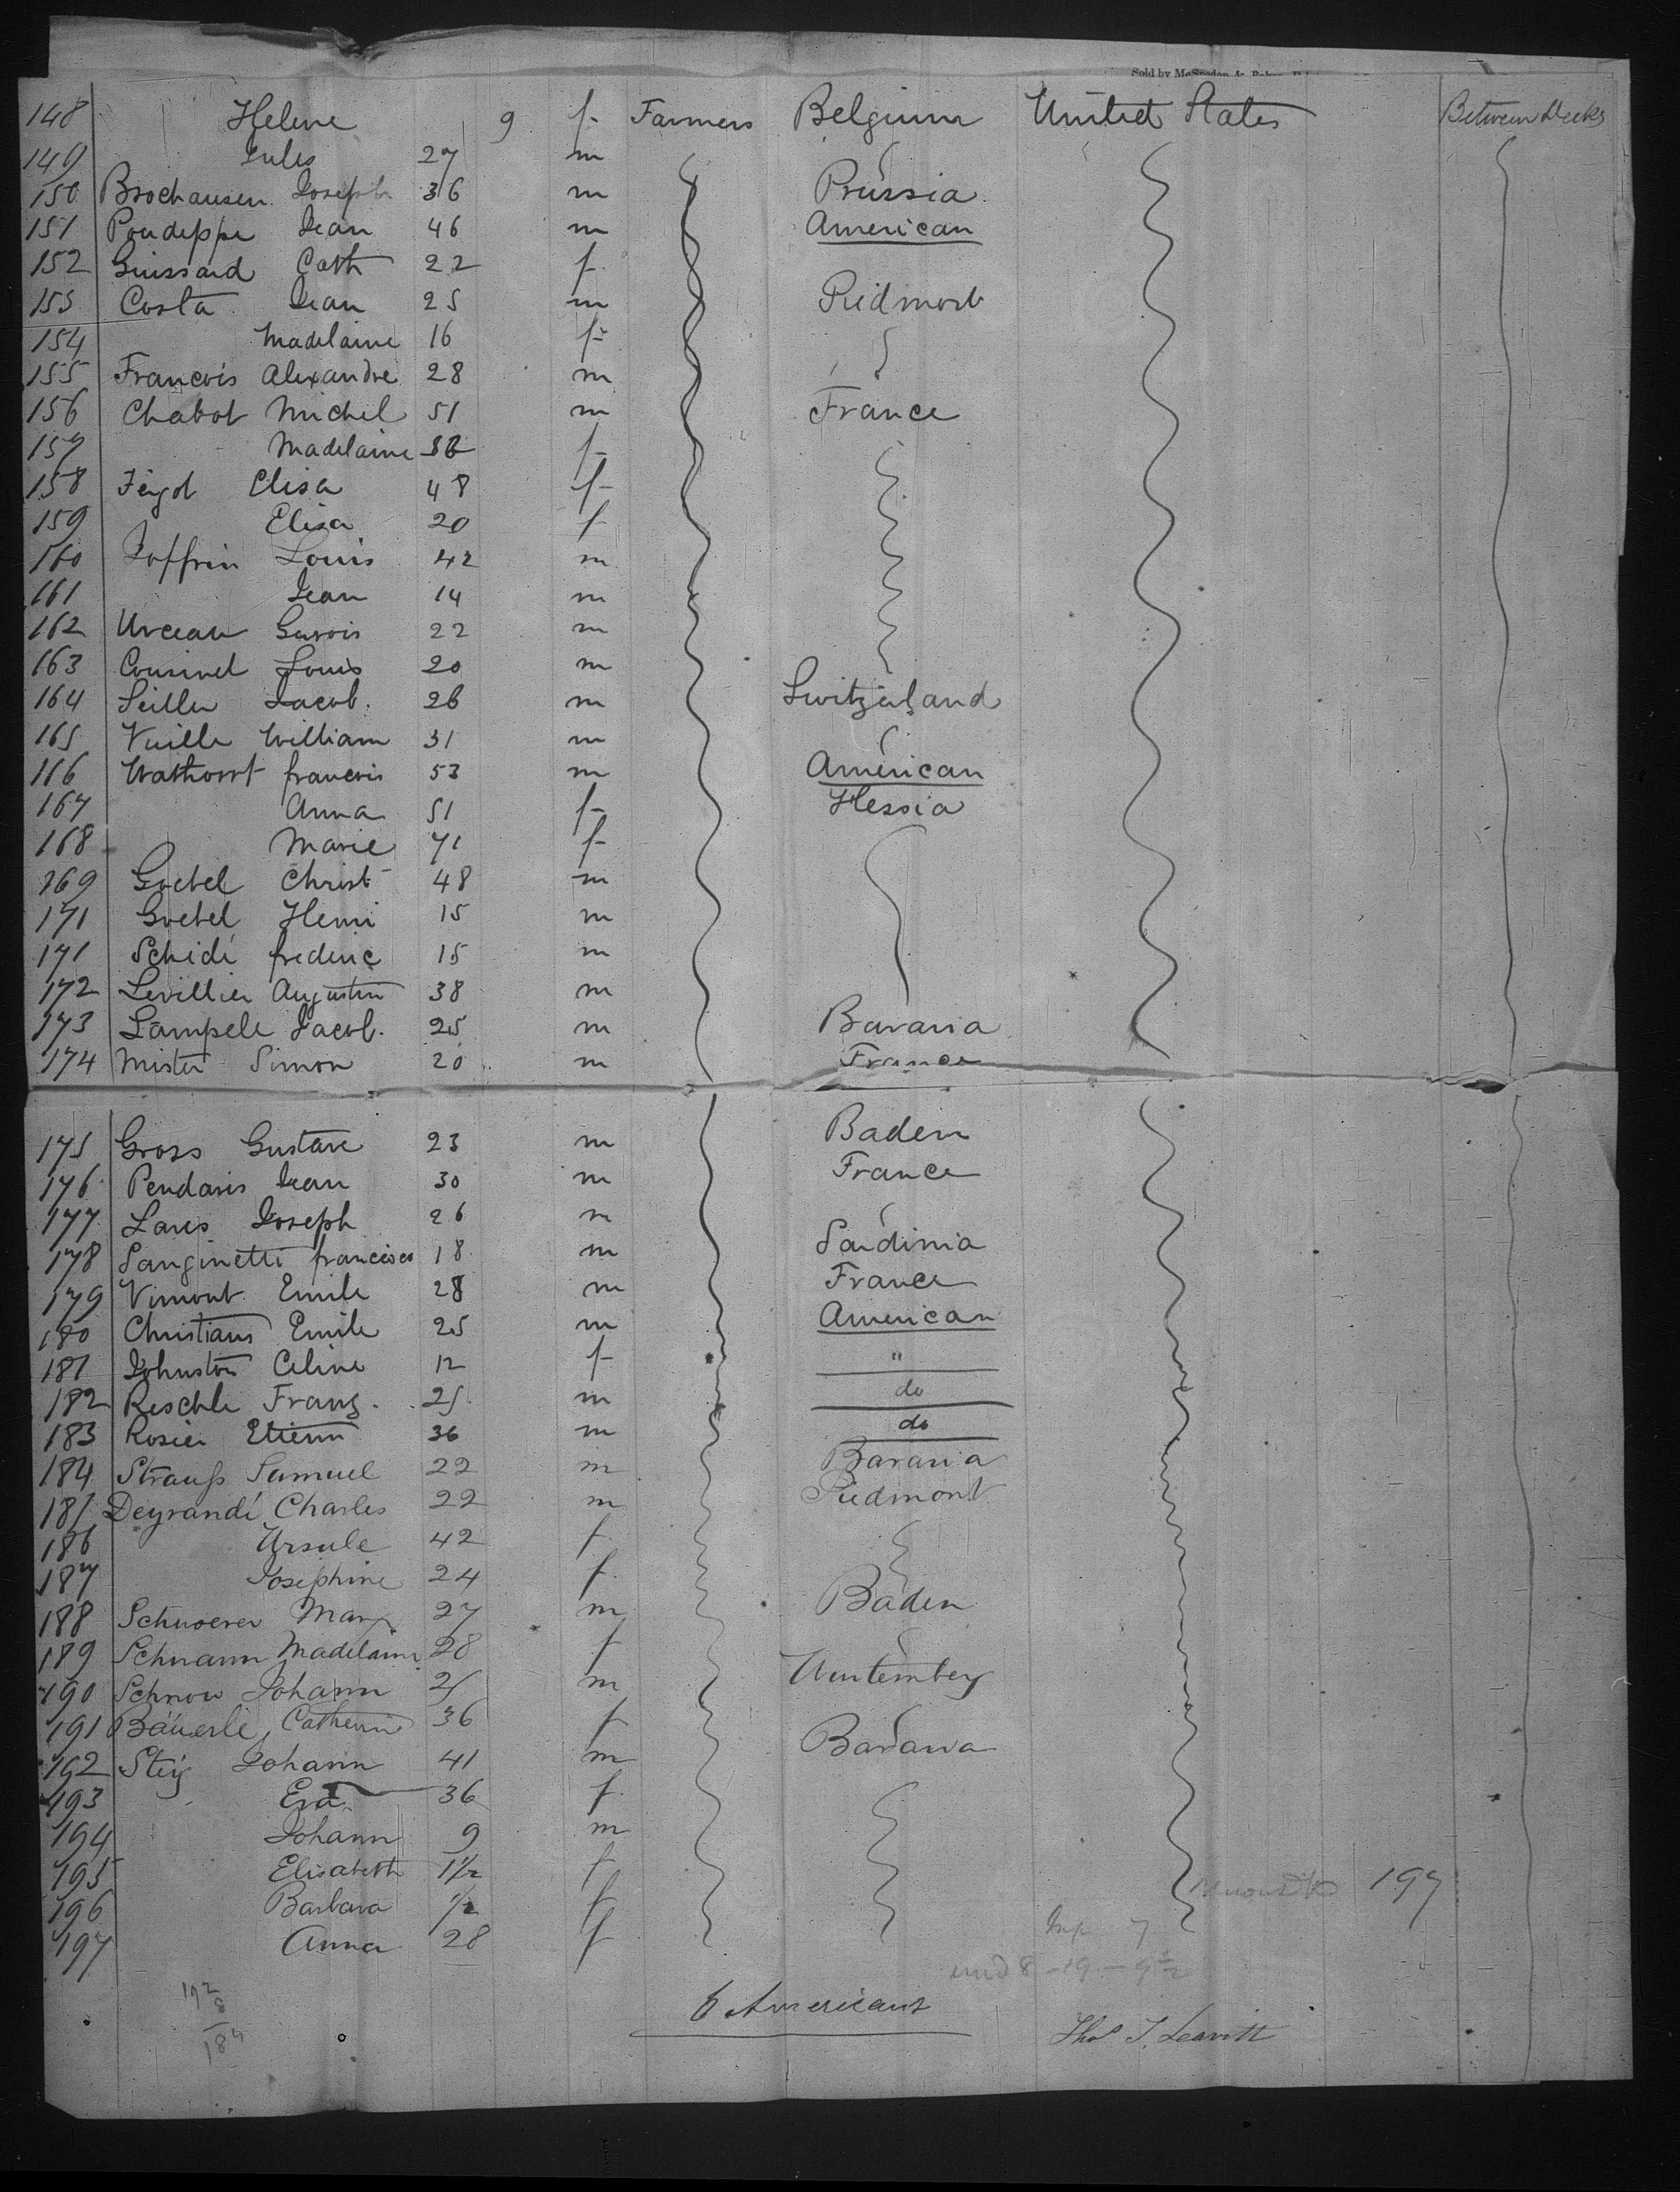 Sold by McSpedon &
148 Helene 9 f- Farmers Belgium United States Between Decks
149 Jules 27 m
150 Brochausen Joseph 36 m Prussia
151 Poudeppe Jean 46 m American
152 Guissard Cath 22 f
153 Costa Jean 25 m Piedmont
154 Madelaine 16 f-
155 Francois Alexandre 28 m
156 Chabot Michel 51 m France
157 Madelaine f-
158 Elisa 48 f-
159 Elisa 20 f
160 Joffrin Louis 42 m
161 Jean 14 m
162 22 m
163 Cousinet Louis 20 m
164 Seiller Jacob. 26 m Switzerland
165 Vuille William 31 m
166 francois 53 m American
167 Anna 51 f- Hessia
168 Marie 71 f-
169 Goebel Christ 48 m
171 Goebel Henri 15 m
171 Schidé frederic 15 m
172 Levillier Augustin 38 m
173 Lampele Jacob. 25 m Bavaria
174 Mister Simon 20 m France
175 Gross Gustave 23 m Baden
176 Pendaris Jean 30 m France
177 Laus Joseph 26 m
178 Sanginetti francisco 18 m Sardinia
179 Vimont Emile 28 m France
180 Christians Emile 25 m American
181 Johnston Celine 12 f- "
182 Reschle Franz. 25 m do
183 Rosier Etienn 36 m do
184 Strauss Samuel 22 m Bavaria
185 Deyrandé Charles 22 m Piedmont
186 Ursule 42 f
187 Josephine 24 f
188 Schwoerer Marx 27 m Baden
189 Schnann Madelaine 28 f
190 Schnow Johann 25 m Wurtemberg
191 Bäuerle Catherin 36 f
192 Steig Johann 41 m Bavaria
193 Eva 36 f
194 Johann 9 m
195 Elisabeth 1 1/2 f 197
196 Barbara 1/2 f
197 Anna 28 f
192
8
184
6 Americans
Thos T. Leavitt